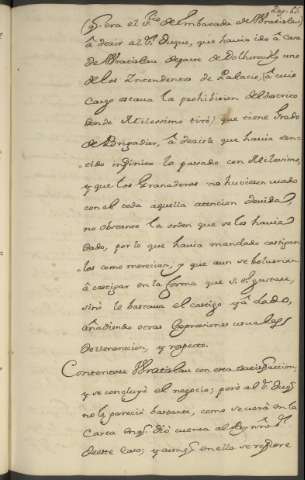 Pag. 65.
(q. era el Srio de Embaxada de Wratislau)
â decir al Sr. Duque, que havia ido â Casa
de Wratislau de parte de Dolhoruki, uno
de los Intendentes de Palacio, (â cuio
Cargo estava la prohibicion del
donde Milessimo tirò) que tiene Grado
de Brigadier, â decirle que havia sen-
tido infinito lo passado con Milessimo,
y que los Granaderos no huviessen usado
con el toda aquella atencion devida,
no obstante la orden que se les havia
dado, por lo que havia mandado castigar
los como merecian, y que aun se bolverian
â castigar en la forma que el gustasse,
sino le bastava el castigo yâ dado,
añadiendo otras expresiones usuales
de veneracion, y respeto.
Contentose Wratislau con esta satisfaccion;
y se concluyò el negocio; però al Sr. Duq.
no le pareciò bastante, como se verà en la
Carta en q. diò cuenta al Rey nrô. Sr.
de este caso; y aunq. en ella se refiere